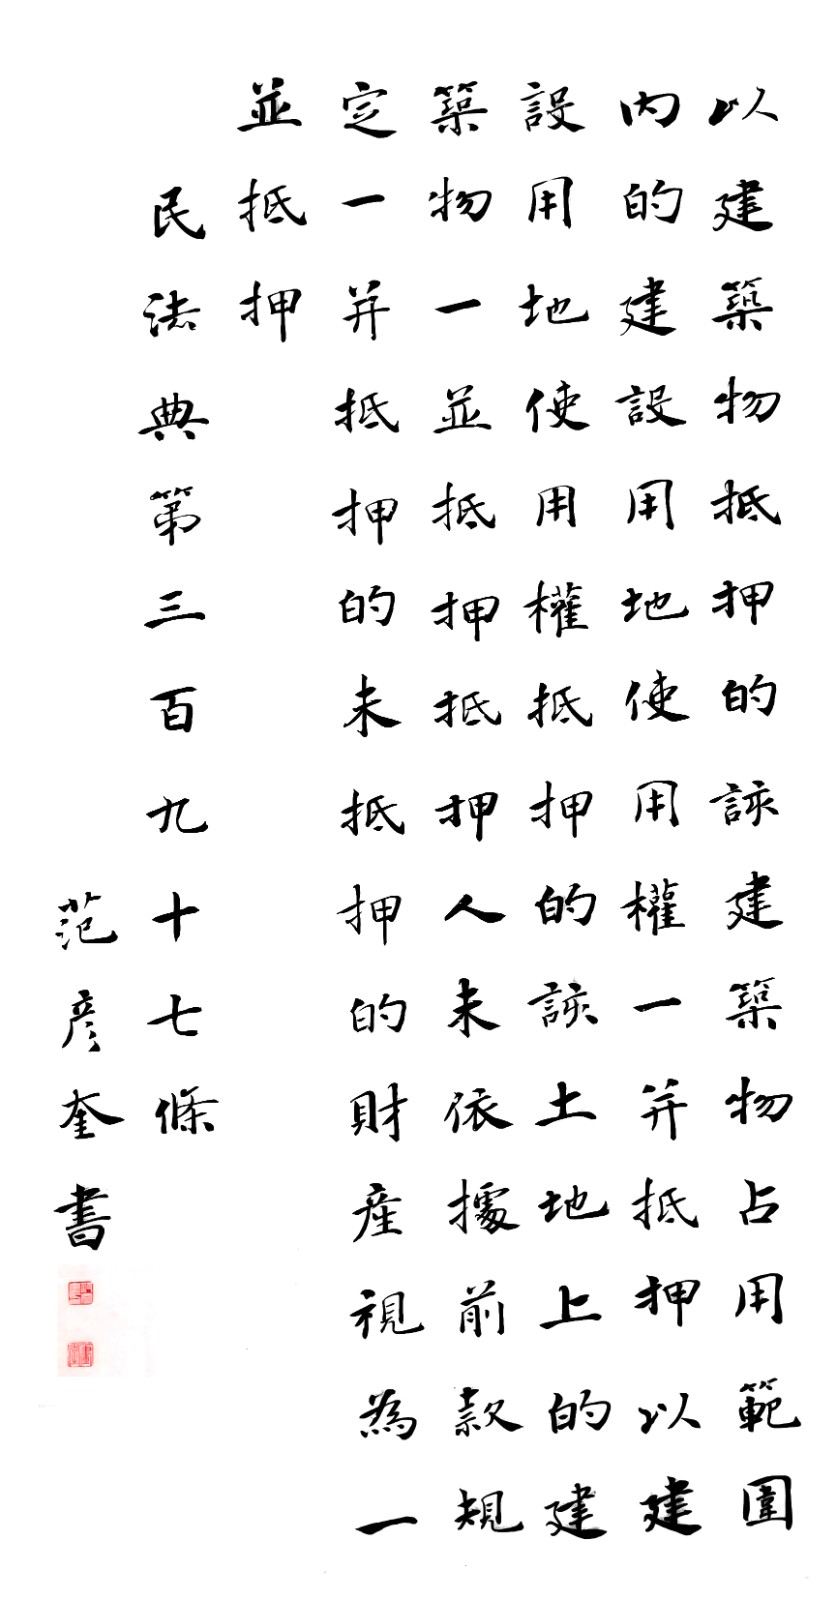 以建築物抵押的該建築物占用範圍
内的建設用地使用權一并抵押以建
設用地使用權抵押的該土地上的建
築物一並抵押抵押人未依據前款規
定一并抵押的未抵押的財產視為一
並抵押
民法典第三百九十七條
范彥奎書